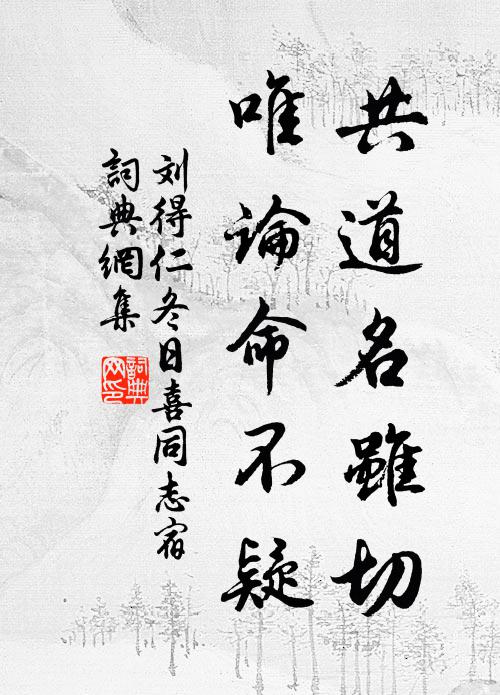 共道名雖切
唯論命不疑
刘得仁冬日喜同志宿
詞典網集
詞典网印